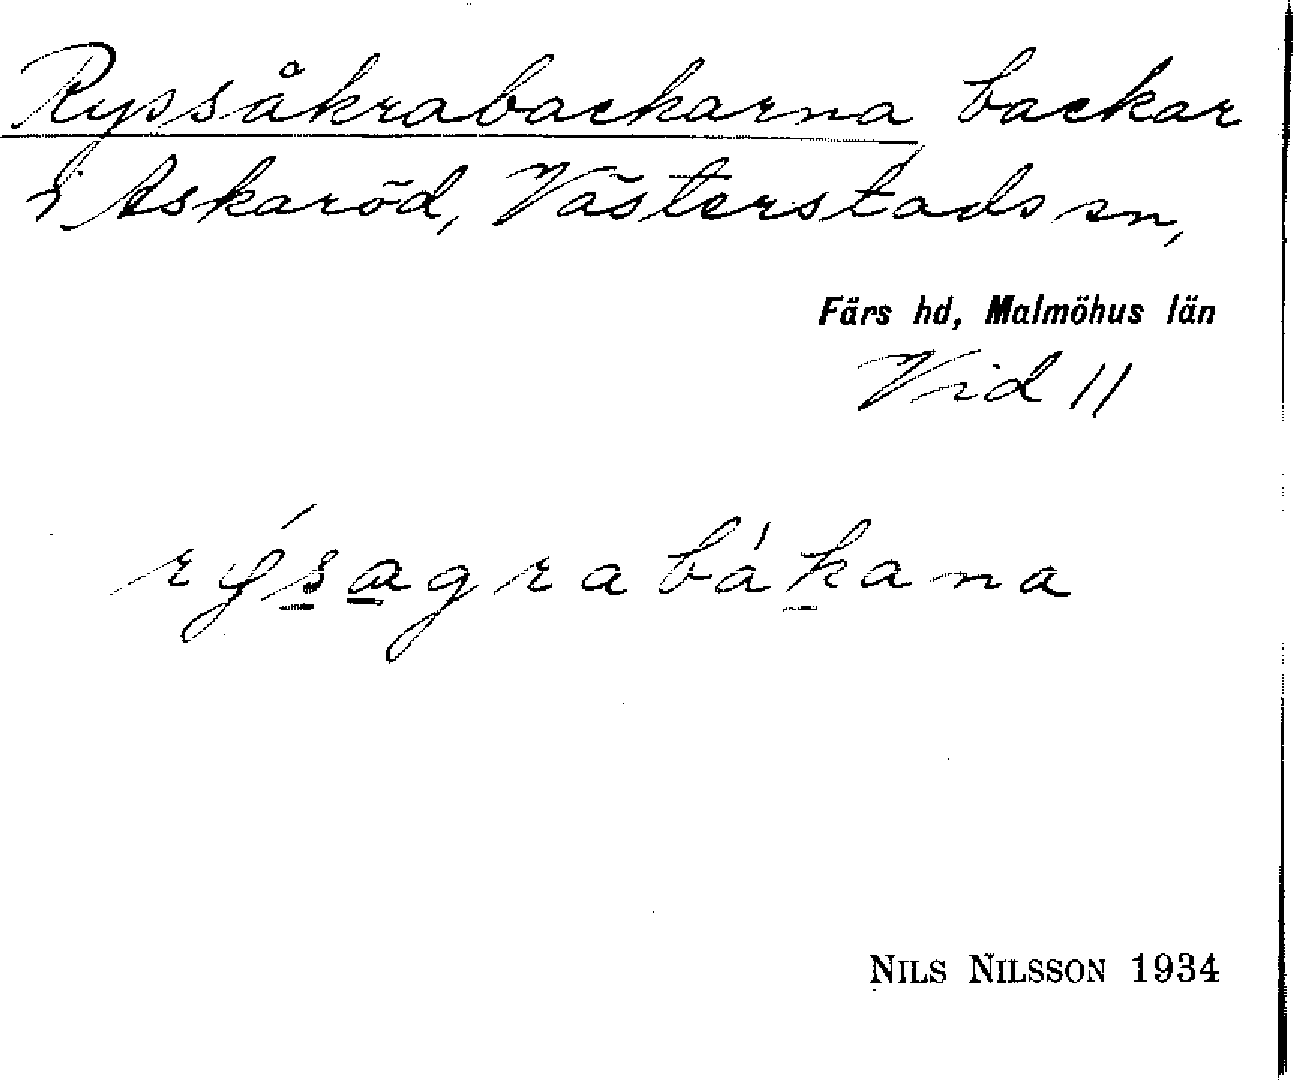 Ryssåkrabackarna backar
i Askaröd, Västerstads sn,
Färs hd, Malmöhus län
Vid 11
rýs̲a̲grabák̲ana
NILS NILSSON 1934